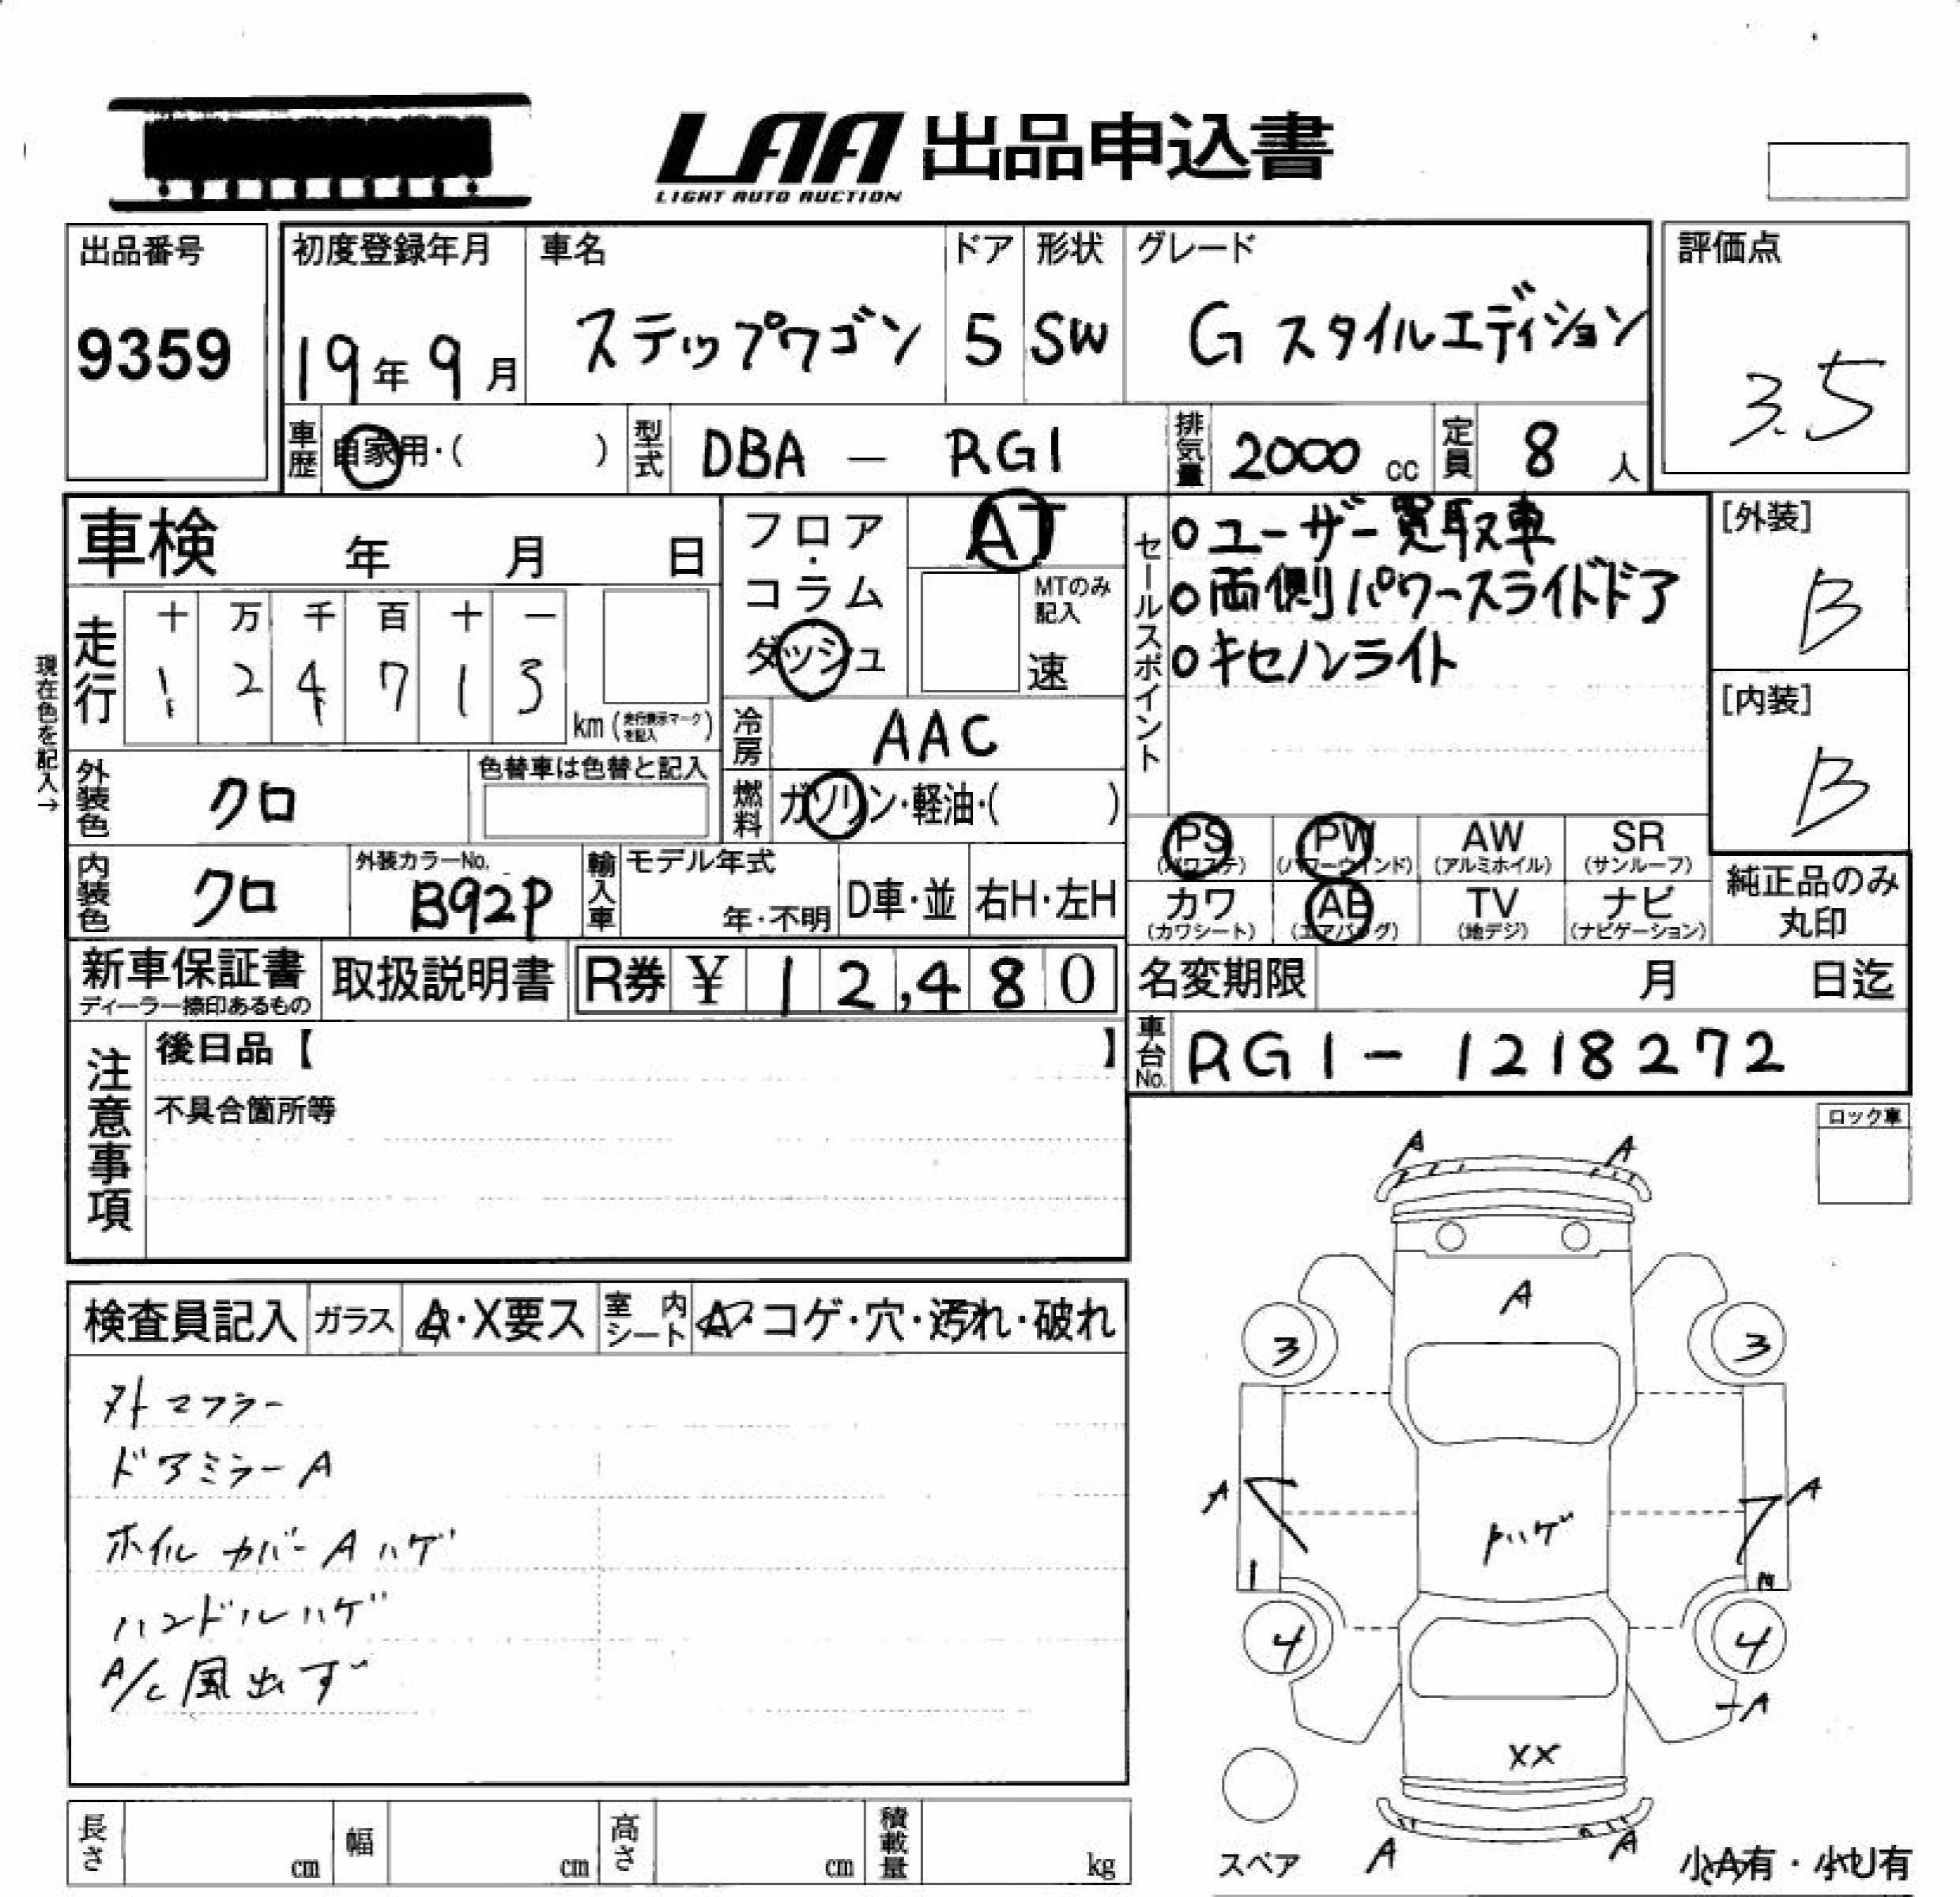 LAA 出品申込書
LIGHT AUTO AUCTION
出品番号
9359
初度登録年月
19年 9月
車名
ステップワゴン
ドア
5
形状
SW
グレード
G スタイルエディション
評価点
3.5
車歴 自家用・( )
型式 DBA - RG1
排気量 2000 cc
定員 8 人
車検 年 月 日
フロア・コラム
ダッシュ
AT
MTのみ記入
速
セールスポイント
○ユーザー買取車
○両側パワースライドドア
○キセノンライト
[外装]
B
[内装]
B
現在色を記入→
走行
十 万 千 百 十 一
1 2 4 7 1 3
km (走行表示マークを記入)
冷房 AAC
外装色 クロ
色替車は色替と記入
燃料 ガソリン・軽油・( )
PS PW AW SR
(パワステ) (パワーウインド) (アルミホイル) (サンルーフ)
カワ AB TV ナビ
(カワシート) (エアバッグ) (地デジ) (ナビゲーション)
純正品のみ
丸印
内装色 クロ
外装カラーNo.
B92P
輸入車
モデル年式
年・不明
D車・並
右H・左H
新車保証書
ディーラー捺印あるもの
取扱説明書
R券 ¥ 12,480
名変期限 月 日迄
車台No. RG1-1218272
注意事項
後日品【 】
不具合箇所等
ロック車
検査員記入
ガラス A・X要ス
室内シート A・コゲ・穴・汚れ・破れ
外マフラー
ドアミラーA
ホイルカバーA ハゲ
ハンドルハゲ
A/C 風出ず
A A
A
3 3
A A
トハゲ
4 4
A
XX
A A
スペア
小A有・小U有
長さ cm
幅 cm
高さ cm
積載量 kg